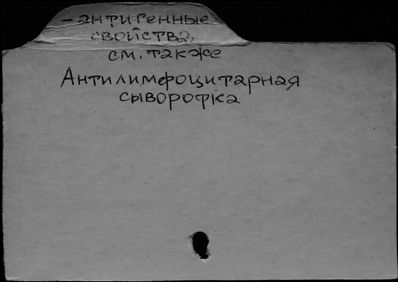 – антигенные
свойства,
см. также
Антилимфоцитарная
сыворотка